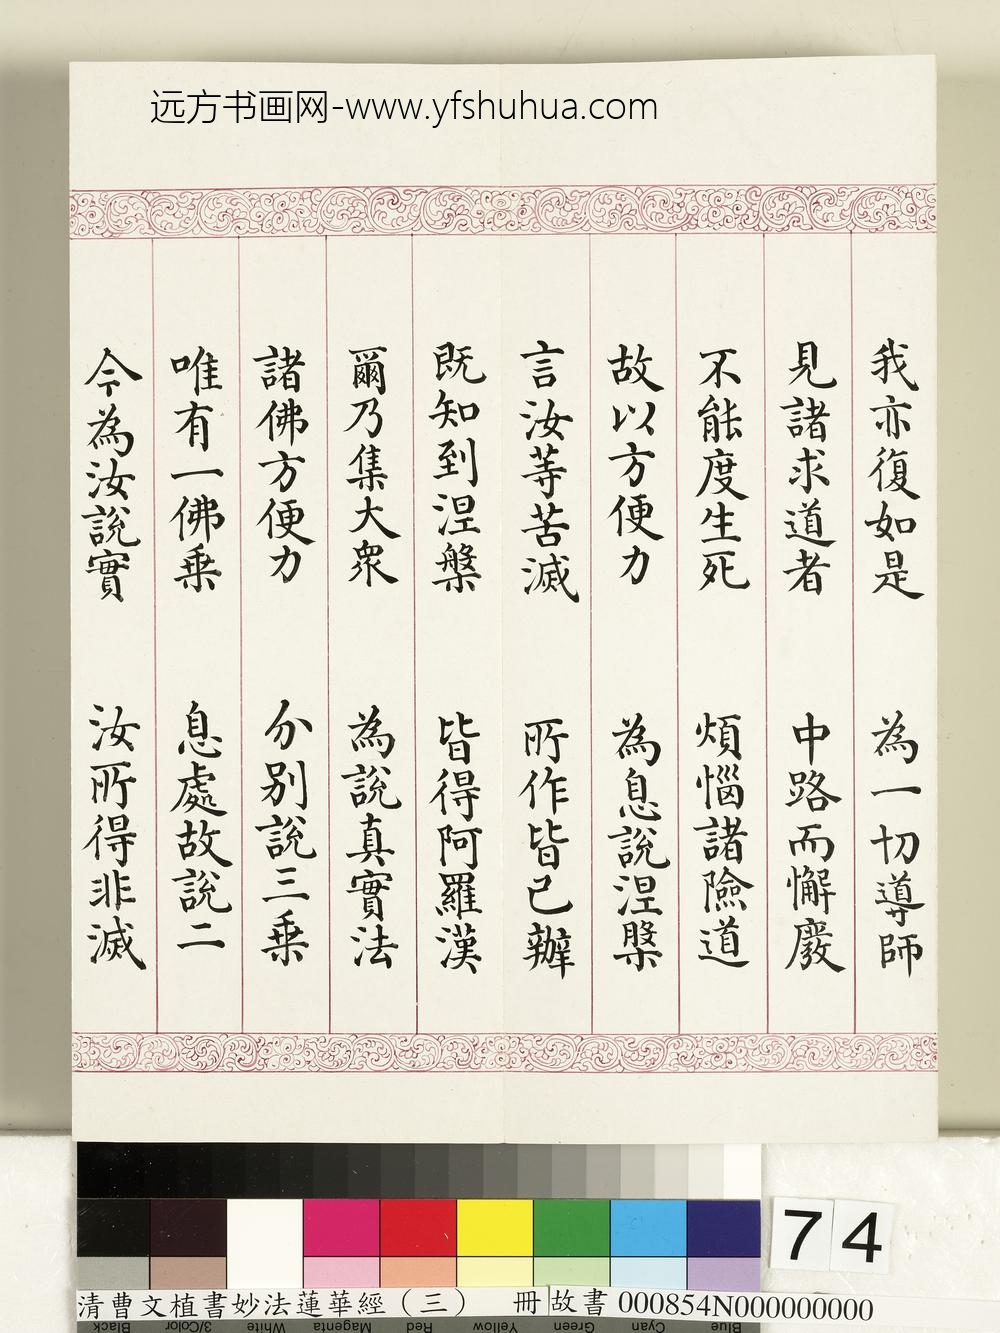 远方书画网-www.yfshuhua.com
我亦復如是 為一切導師
見諸求道者 中路而懈廢
不能度生死 煩惱諸險道
故以方便力 為息說涅槃
言汝等苦滅 所作皆已辦
既知到涅槃 皆得阿羅漢
爾乃集大眾 為說真實法
諸佛方便力 分別說三乗
唯有一佛乗 息處故說二
今為汝說實 汝所得非滅
74
清曹文植書妙法蓮華經（三） 冊 故書 000854N000000000
Black 3/Color White Magenta Red Yellow Green Cyan Blue